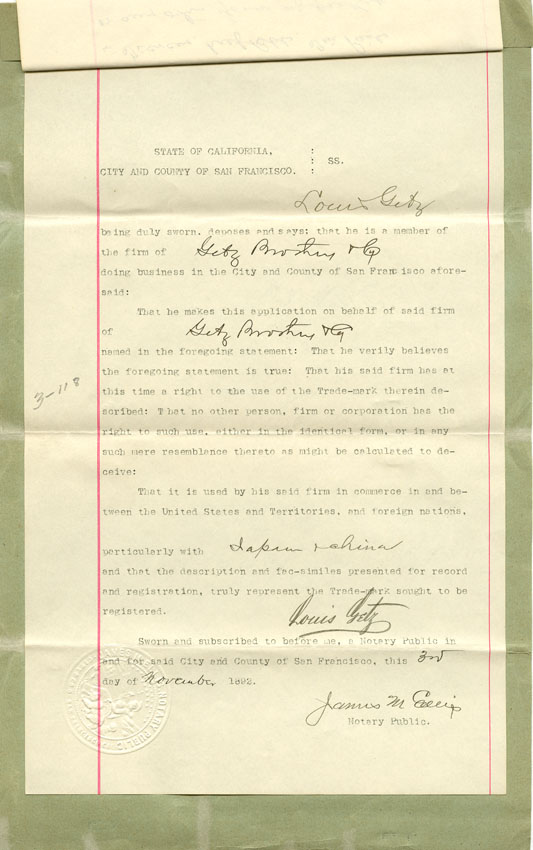 STATE OF CALIFORNIA, :
: SS.
CITY AND COUNTY OF SAN FRANCISCO. :
Louis Getz
being duly sworn, deposes and says: that he is a member of
the firm of Getz Brothers & Co
doing business in the City and County of San Francisco afore-
said:
That he makes this application on behalf of said firm
of Getz Brothers & Co
named in the foregoing statement: That he verily believes
the foregoing statement is true: That his said firm has at
this time a right to the use of the Trade-mark therein de-
scribed: That no other person, firm or corporation has the
right to such use, either in the identical form, or in any
such mere resemblance thereto as might be calculated to de-
ceive:
3-118
That it is used by his said firm in commerce in and be-
tween the United States and Territories, and foreign nations,
particularly with Japan & China
and that the description and fac-similes presented for record
and registration, truly represent the Trade-mark sought to be
registered.
Louis Getz
Sworn and subscribed to before me, a Notary Public in
and for said City and County of San Francisco, this 3rd
day of November 1892.
James M Ellis
Notary Public.